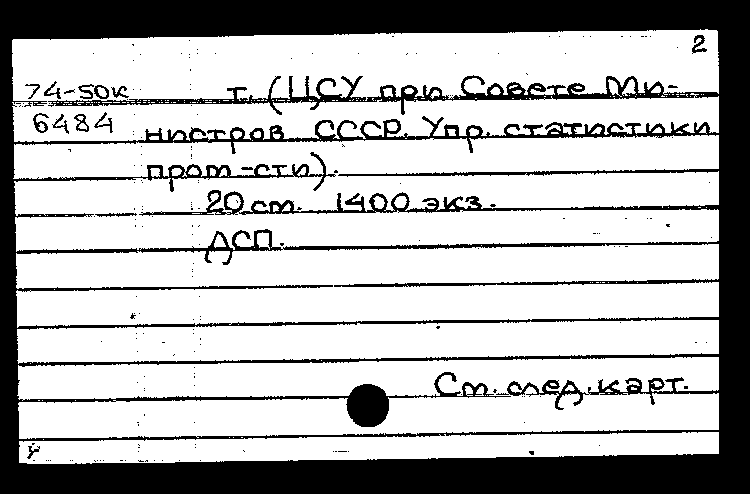 2
74-50к т. (ЦСУ при Совете Ми-
6484 нистров СССР. Упр. статистики
пром-сти).
20 см. 1400 экз.
ДСП.
См. след. карт.